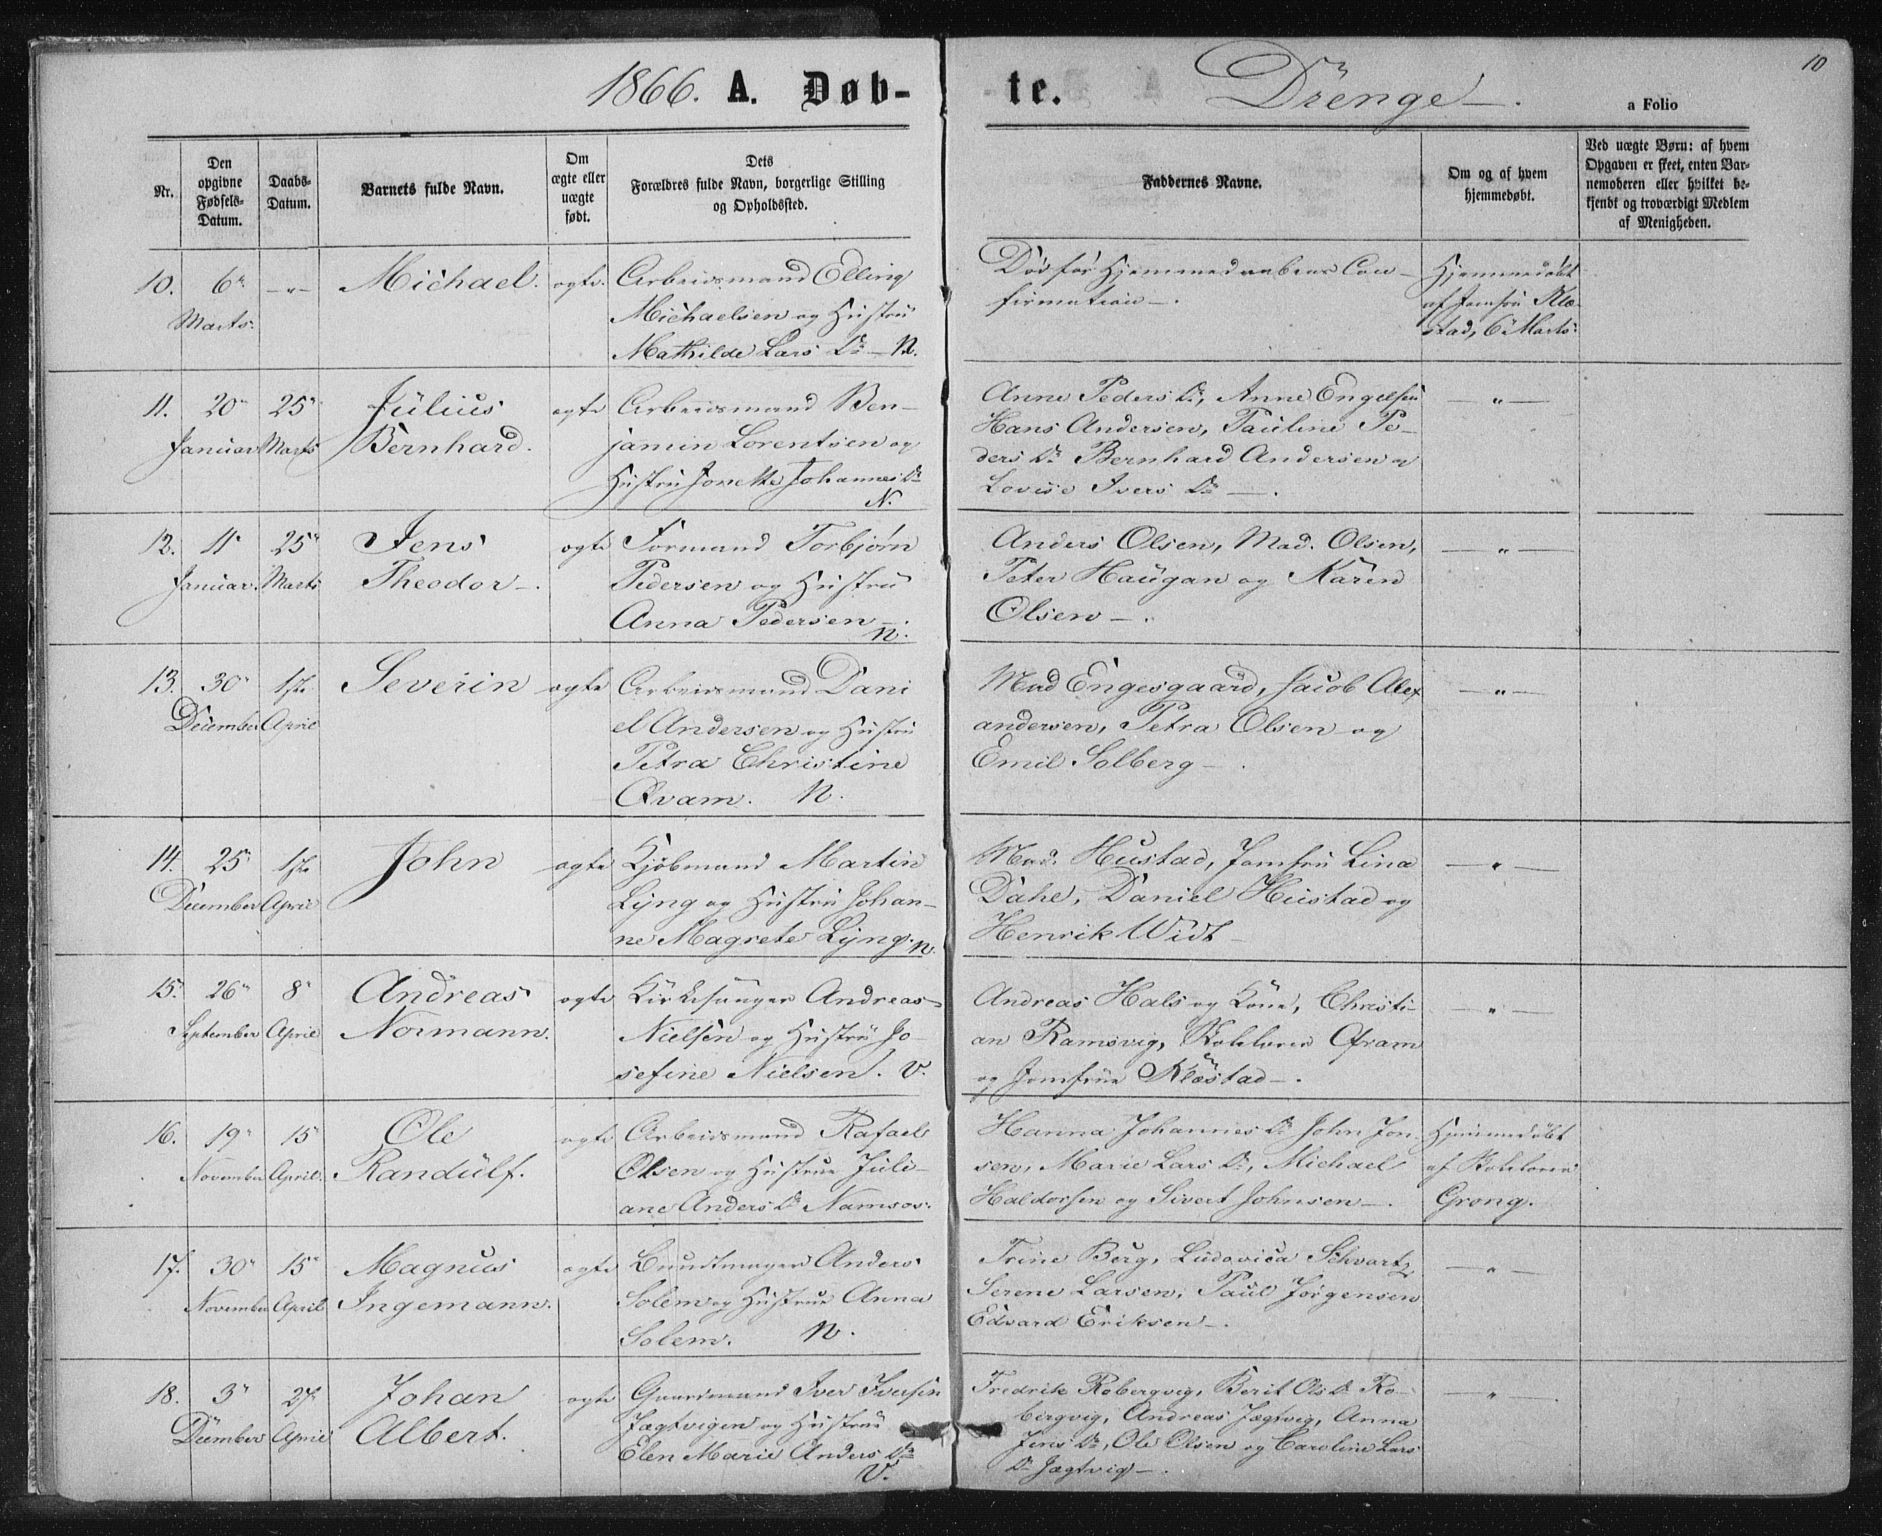 1866. A. Døb-te. Drenge. a Folio 10
Nr.
Den opgivne Fødsels-Datum.
Daabs-Datum.
Barnets fulde Navn.
Om ægte eller uægte født.
Dets Forældres fulde Navn, borgerlige Stilling og Opholdssted.
Faddernes Navne.
Om og af hvem hjemmedøbt.
Ved uægte Børn: af hvem Opgaven er skeet, enten Barnemoderen eller hvilket bekjendt og troværdigt Medlem af Menigheden.
10. 6" Marts. -"- Michael. ægte.
Arbeidsmand Elling
Michaelsen og Hustru
Mathilde Lars Dr. N.
Død før Hjemmedaabens Con-
firmation.
Hjemmedøbt
af Jomfru Klæ-
stad, 6" Marts.
11. 20" Januar 25" Marts Julius Bernhard. ægte
Arbeidsmand Ben-
jamin Lorentsen og
Hustru Jonette Johannes Dr
N.
Anne Peders Dr, Anne Engelsen
Hans Andersen, Pauline Pe-
ders Dr Bernhard Andersen og
Lovise Ivers Dr.
-"-
12. 11" Januar. 25" Marts Jens Theodor. ægte
Formand Torbjørn
Pedersen og Hustru
Anna Pedersen.
N.
Anders Olsen, Mad. Olsen,
Peter Haugan og Karen
Olsen.
-"-
13. 30" December 1ste April Severin ægte
Arbeidsmand Dani
el Andersen og Hustru
Petra Christine
Qvam. N.
Mad Engesgaard, Jacob Alex
andersen, Petra Olsen og
Emil Solberg.
-"-
14. 25" December 1ste April John ægte
Kjøbmand Martin
Lyng og Hustru Johan-
ne Magrete Lyng. N.
Mad. Hustad, Jomfru Lina
Dahe, Daniel Hustad og
Henrik Widt
-"-
15. 26" September 8" April Andreas Normann. ægte
Kirkesanger Andreas
Nielsen og Hustru Jo-
sefine Nielsen. V.
Andreas Hals og Kone, Christi-
an Ramsvig, Qvam
og Jomfrue Klæstad.
-"-
16. 19" November 15" April. Ole Randulf. ægte
Arbeidsmand Rafael
Olsen og Hustrue Juli-
ane Anders Dr Namsos.
Hanna Johannes Dr John Jon
sen, Marie Lars Dr, Michael
Haldorsen og Sivert Johnsen.
Hjemmedøbt
af
Grong.
17. 30" November 15" April Magnus Ingemann. ægte
Bundtmager Anders
Solem og Hustrue Anna
Solem. N.
Trine Berg, Ludovica Schvartz
Serene Larsen, Paul Jørgensen
Edvard Eriksen.
-"-
18. 3" December 27 April Johan Albert. ægte
Gaardmand Iver Iversen
Jægtvigen og Hustrue
Elen Marie Anders Dr
V.
Fredrik Robergvig, Berit Ols Dr Ro-
bergvig, Andreas Jægtvig, Anna
Jens Dr, Ole Olsen og Caroline Lars
Dr Jægtvig.
-"-